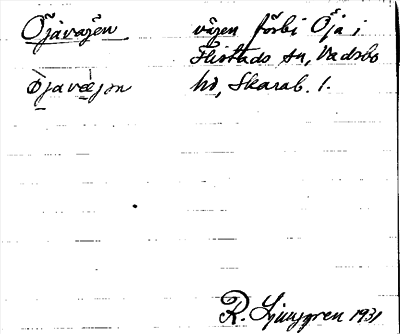 Öjavägen vägen förbi Öja i
Flistads sn, Vadsbo
Øjavæjən hd, Skarab. l.
R. Ljunggren 1931